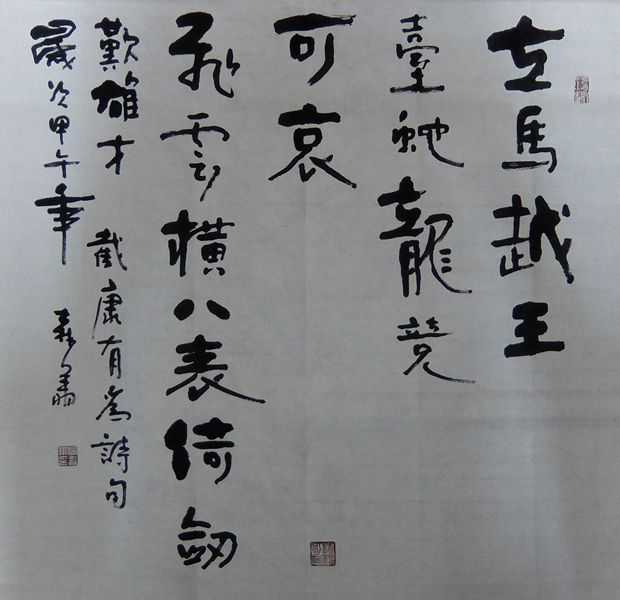 立馬越王
臺虵龍竟
可哀
飛雲橫八表倚劒
歎雄才 截康有為詩句
歲次甲午年 森